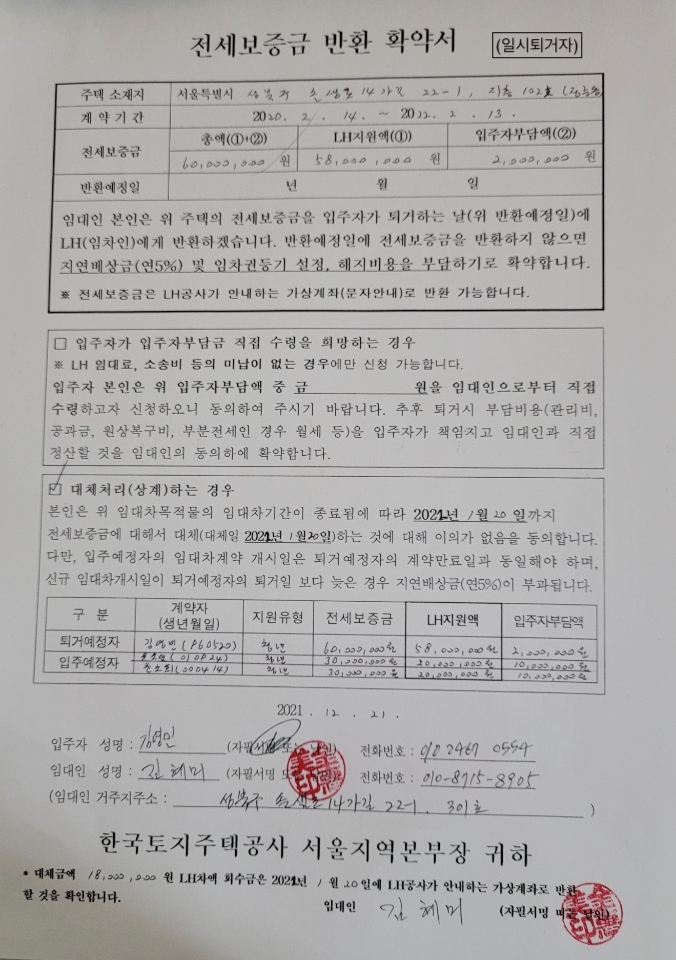 전세보증금 반환 확약서 (일시퇴거자)
주택 소재지 서울특별시 성북구 손샘로 14가길 22-1, 지층 102호
계 약 기 간 2020. 2. 14. ~ 2022. 2. 13.
전세보증금 총액(①+②) LH지원액(①) 입주자부담액(②)
60,000,000 원 58,000,000 원 2,000,000 원
반환예정일 년 월 일
임대인 본인은 위 주택의 전세보증금을 입주자가 퇴거하는 날(위 반환예정일)에
LH(임차인)에게 반환하겠습니다. 반환예정일에 전세보증금을 반환하지 않으면
지연배상금(연5%) 및 임차권등기 설정, 해지비용을 부담하기로 확약합니다.
※ 전세보증금은 LH공사가 안내하는 가상계좌(문자안내)로 반환 가능합니다.
□ 입주자가 입주자부담금 직접 수령을 희망하는 경우
※ LH 임대료, 소송비 등의 미납이 없는 경우에만 신청 가능합니다.
입주자 본인은 위 입주자부담액 중 금 원을 임대인으로부터 직접
수령하고자 신청하오니 동의하여 주시기 바랍니다. 추후 퇴거시 부담비용(관리비,
공과금, 원상복구비, 부분전세인 경우 월세 등)을 입주자가 책임지고 임대인과 직접
정산할 것을 임대인의 동의하에 확약합니다.
☑ 대체처리(상계)하는 경우
본인은 위 임대차목적물의 임대차기간이 종료됨에 따라 2022년 1월 20일까지
전세보증금에 대해서 대체(대체일 2022년 1월20일)하는 것에 대해 이의가 없음을 동의합니다.
다만, 입주예정자의 임대차계약 개시일은 퇴거예정자의 계약만료일과 동일해야 하며,
신규 임대차개시일이 퇴거예정자의 퇴거일 보다 늦은 경우 지연배상금(연5%)이 부과됩니다.
구 분 계약자 (생년월일) 지원유형 전세보증금 LH지원액 입주자부담액
퇴거예정자 김영민(960520) 청년 60,000,000원 58,000,000원 2,000,000원
입주예정자 (010924) 청년 30,000,000원 20,000,000원 10,000,000원
(000414) 청년 30,000,000원 20,000,000원 10,000,000원
2021. 12. 21.
입주자 성명 : 김영민 (자필서명 또는 날인) 전화번호 : 010 2467 0554
임대인 성명 : 김혜미 (자필서명 또는 날인) 전화번호 : 010-8715-8905
(임대인 거주지주소 : 성북구 손샘로14가길 22-1. 301호 )
한국토지주택공사 서울지역본부장 귀하
* 대체금액 18,000,000 원 LH차액 회수금은 2022년 1월 20일에 LH공사가 안내하는 가상계좌로 반환
할 것을 확인합니다.
임대인 김혜미 (자필서명 또는 날인)